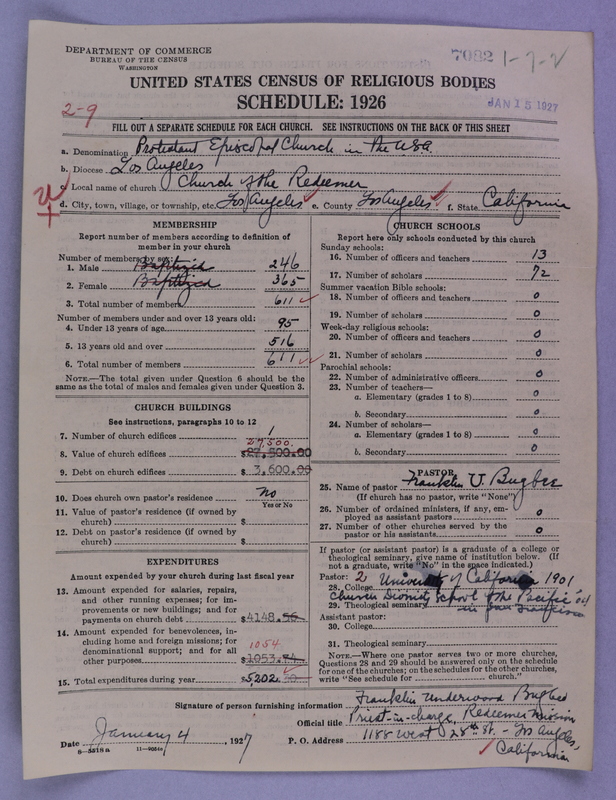 DEPARTMENT OF COMMERCE
BUREAU OF THE CENSUS
WASHINGTON
7082 1-7-2
UNITED STATES CENSUS OF RELIGIOUS BODIES
SCHEDULE: 1926
JAN 15 1927
2-9
FILL OUT A SEPARATE SCHEDULE FOR EACH CHURCH. SEE INSTRUCTIONS ON THE BACK OF THIS SHEET
a. Denomination Protestant Episcopal Church in the U.S.A.
b. Diocese Los Angeles
c. Local name of church Church of the Redeemer
d. City, town, village, or township, etc. Los Angeles e. County Los Angeles f. State California
MEMBERSHIP
Report number of members according to definition of
member in your church
Number of members by sex:
1. Male Baptized 246
2. Female Baptized 365
3. Total number of members 611
Number of members under and over 13 years old:
4. Under 13 years of age 95
5. 13 years old and over 516
6. Total number of members 611
NOTE.—The total given under Question 6 should be the
same as the total of males and females given under Question 3.
CHURCH BUILDINGS
See instructions, paragraphs 10 to 12
7. Number of church edifices 1
27,500.
8. Value of church edifices $27,500.00
9. Debt on church edifices $3,600.00
10. Does church own pastor's residence No
Yes or No
11. Value of pastor's residence (if owned by
church) $
12. Debt on pastor's residence (if owned by
church) $
EXPENDITURES
Amount expended by your church during last fiscal year
13. Amount expended for salaries, repairs,
and other running expenses; for im-
provements or new buildings; and for
payments on church debt $4148.56
14. Amount expended for benevolences, in-
cluding home and foreign missions; for
denominational support; and for all
other purposes 1054 $1053.84
15. Total expenditures during year $5,202
CHURCH SCHOOLS
Report here only schools conducted by this church
Sunday schools:
16. Number of officers and teachers 13
17. Number of scholars 72
Summer vacation Bible schools:
18. Number of officers and teachers 0
19. Number of scholars 0
Week-day religious schools:
20. Number of officers and teachers 0
21. Number of scholars 0
Parochial schools:
22. Number of administrative officers 0
23. Number of teachers—
a. Elementary (grades 1 to 8) 0
b. Secondary 0
24. Number of scholars—
a. Elementary (grades 1 to 8) 0
b. Secondary 0
PASTOR
25. Name of pastor Franklin U. Bugbee
(If church has no pastor, write "None")
26. Number of ordained ministers, if any, em-
ployed as assistant pastors 0
27. Number of other churches served by the
pastor or his assistants 0
If pastor (or assistant pastor) is a graduate of a college or
theological seminary, give name of institution below. (If
not a graduate, write "No" in the space indicated.)
Pastor: 2
28. College University of California 1901
Church Divinity School of the Pacific
29. Theological seminary in San Francisco
Assistant pastor:
30. College
31. Theological seminary
NOTE.—Where one pastor serves two or more churches,
Questions 28 and 29 should be answered only on the schedule
for one of the churches; on the schedules for the other churches,
write "See schedule for church."
Signature of person furnishing information Franklin Underwood Bugbee
Official title Priest-in-charge, Redeemer Mission
Date January 4, 1927 P. O. Address 1188 West 28th St. - Los Angeles,
California
8-5318 a 11-9054